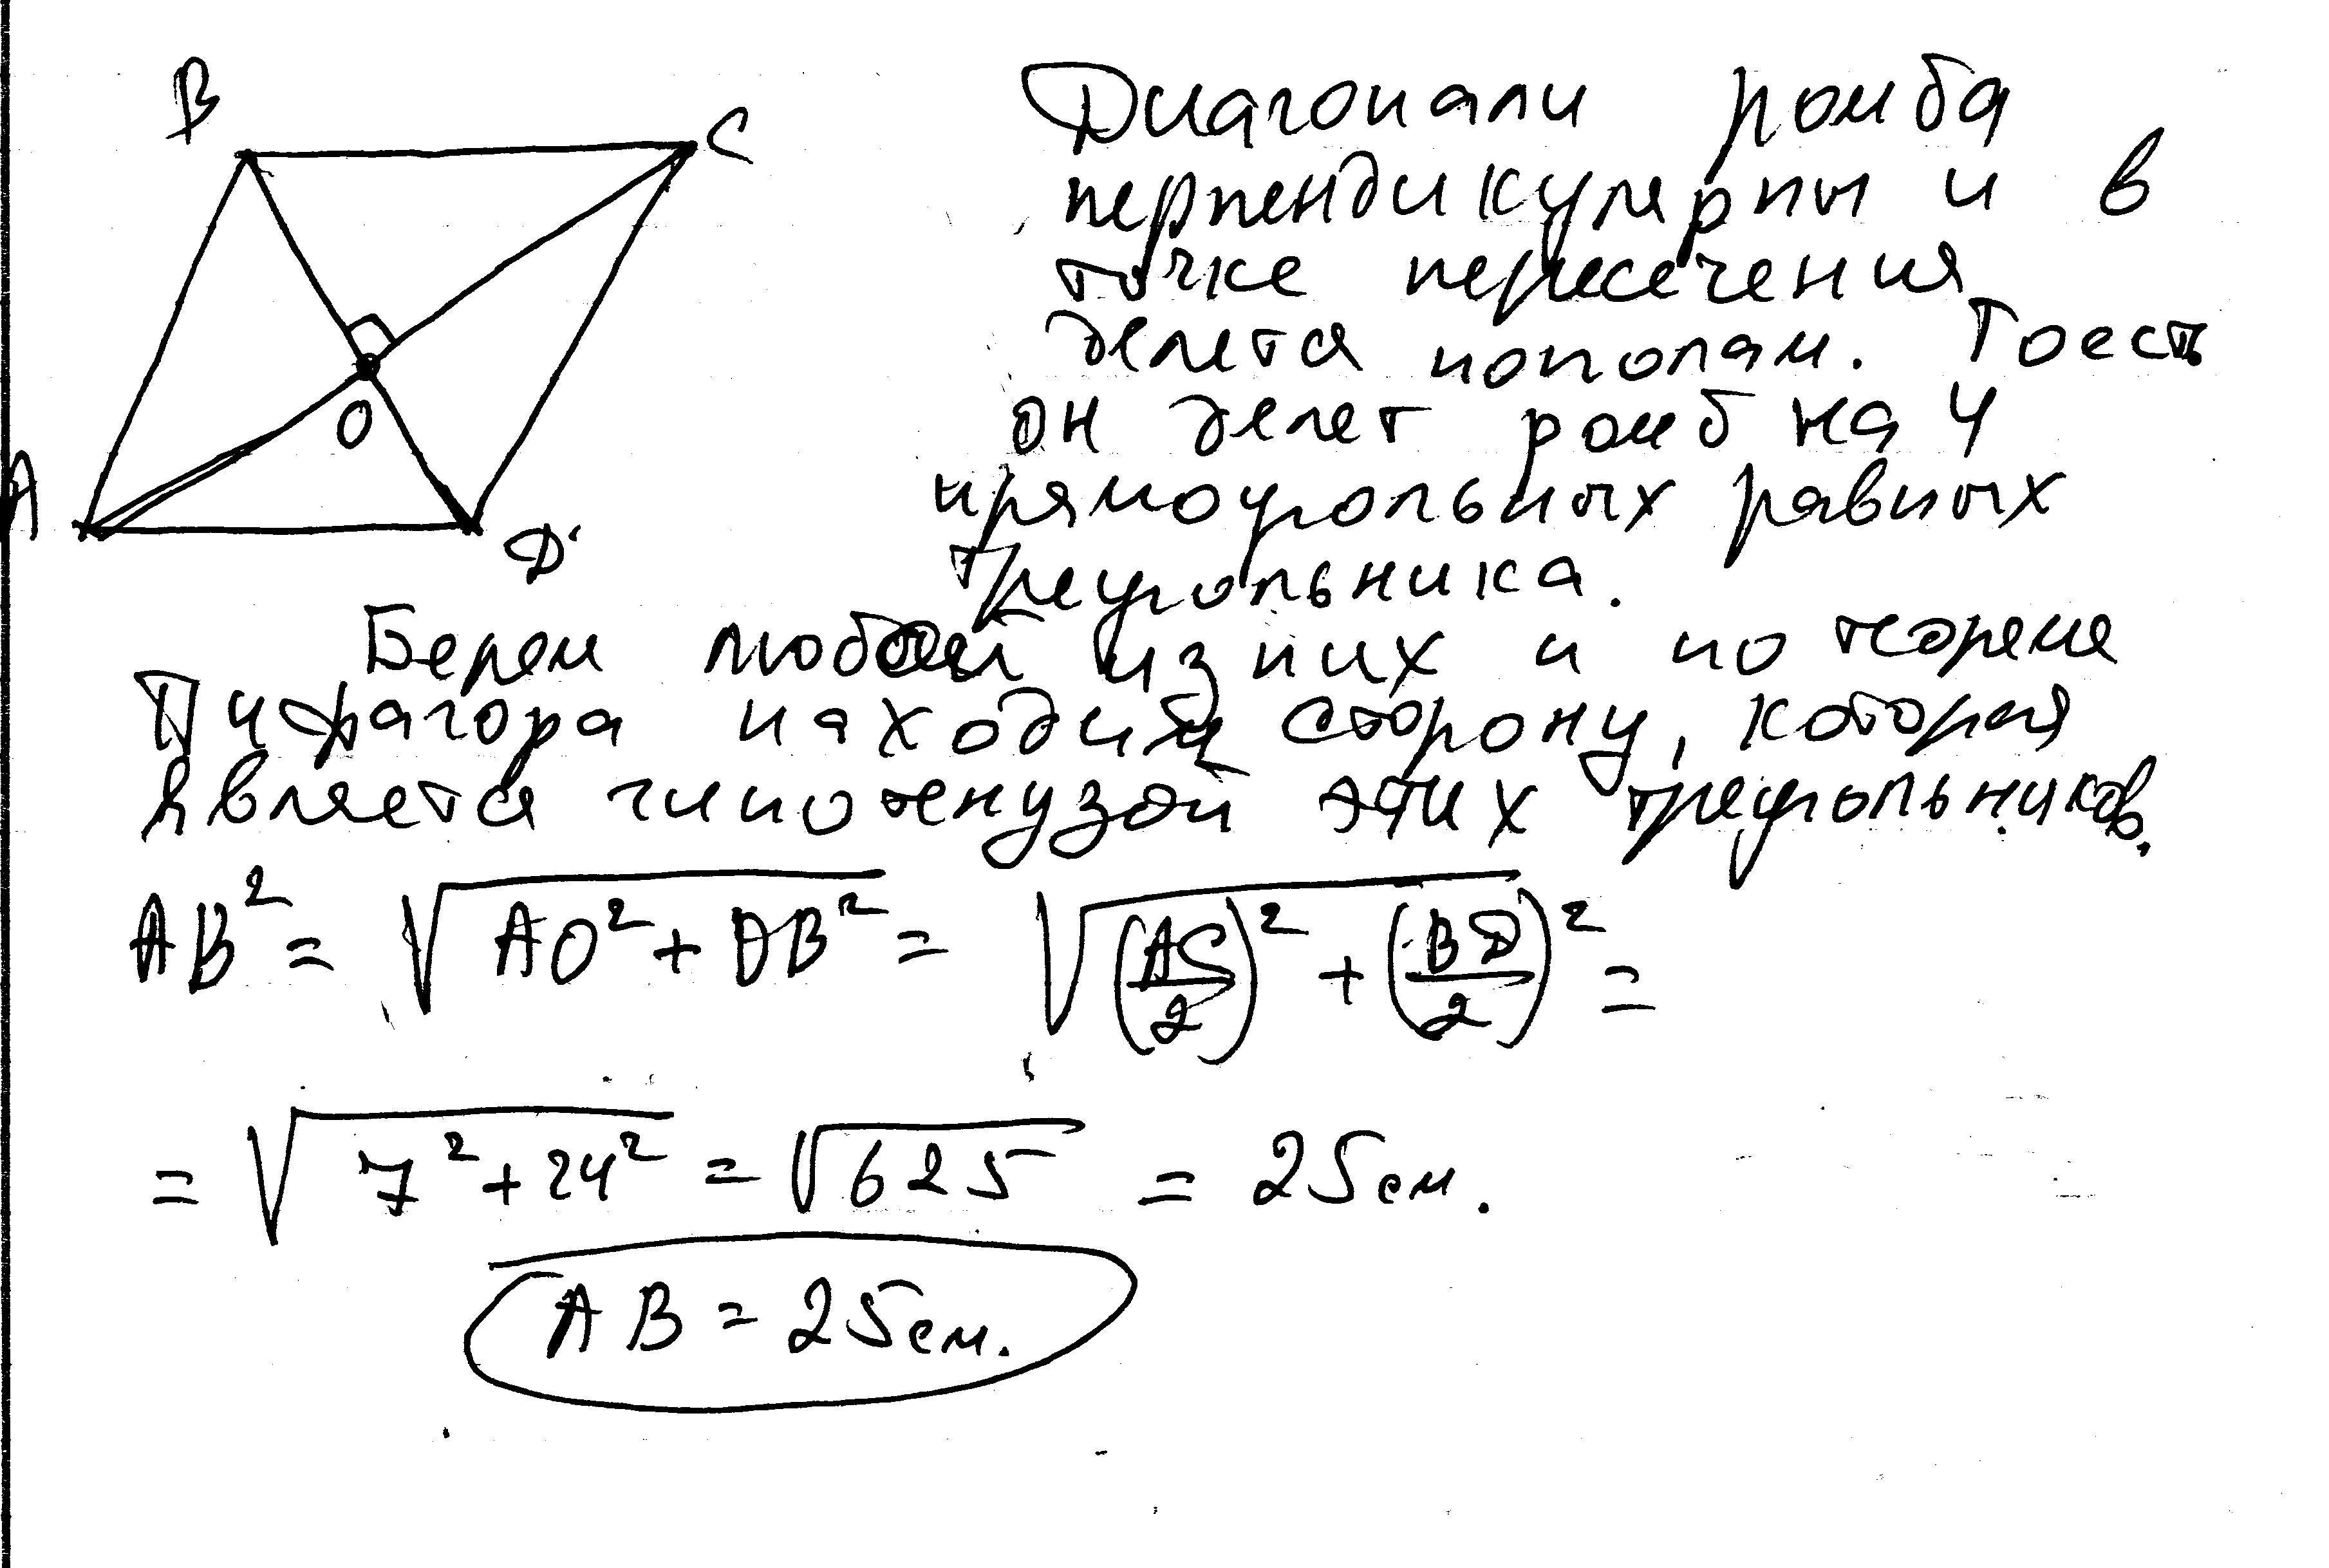 B
C
A
O
D
Диагонали ромба
перпендикулярны и в
точке пересечения
делется пополам. Тоесть
он делет ромб на 4
прямоугольных равных
треугольника.
Берем любой из них и по теореме
Пифагора находим сторону, которая
является гипотенузой этих треугольников.
AB² = √(AO² + OB²) = √((AC/2)² + (BD/2)²) =
= √(7² + 24²) = √625 = 25 см.
AB = 25 см.